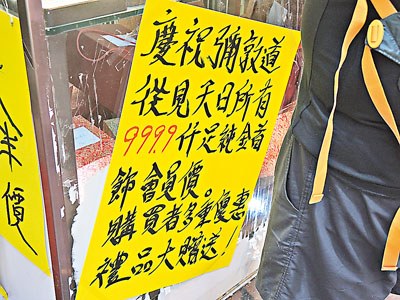 慶祝彌敦道
從見天日所有
9999仟足純金首
飾會員價。
購買者多重優惠
禮品大贈送！
價